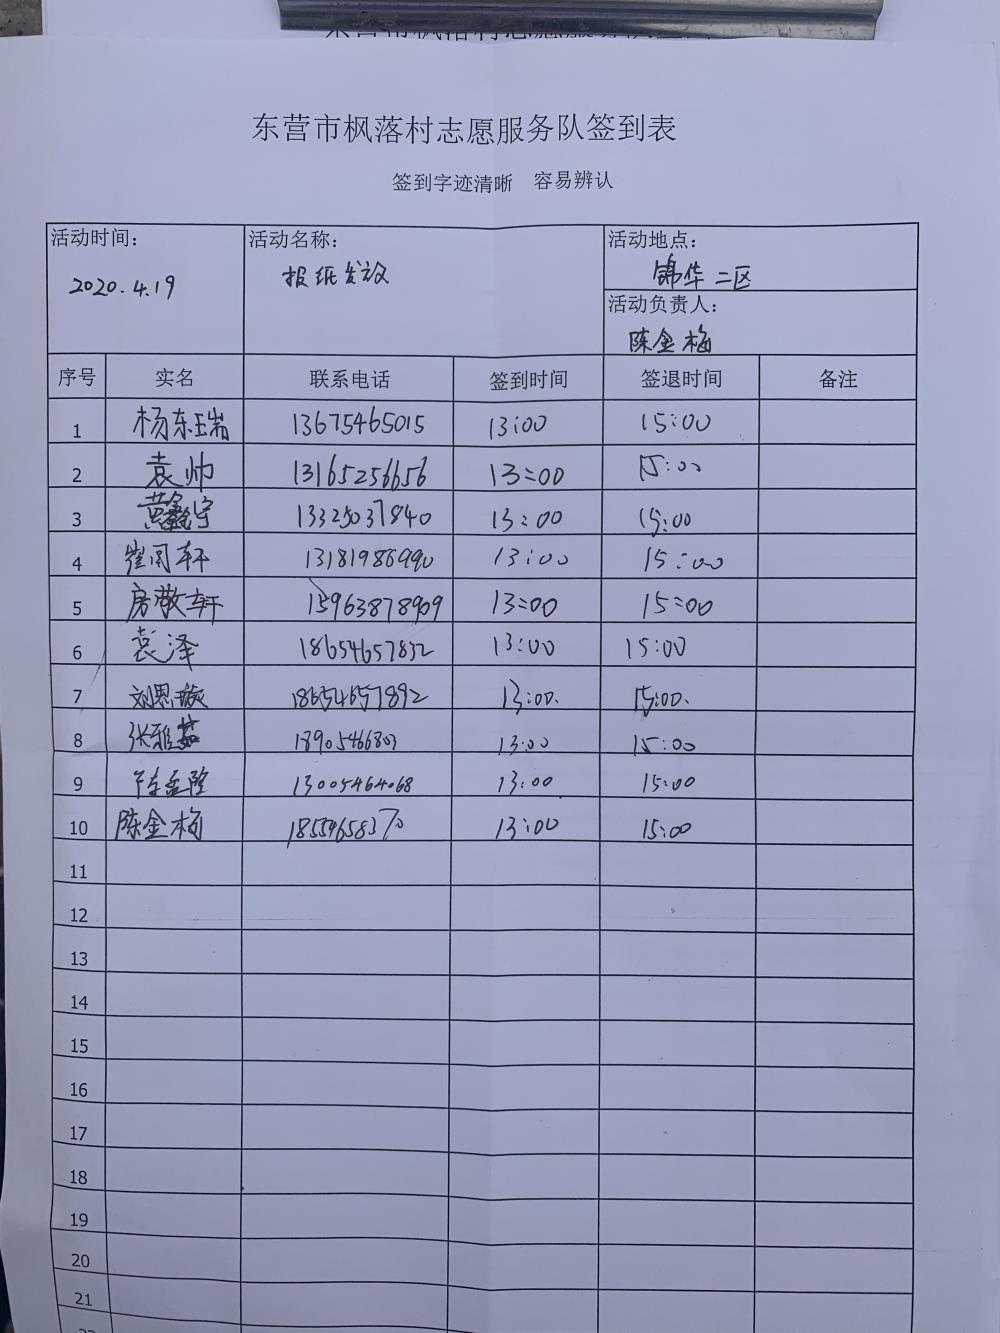 东营市枫落村志愿服务队签到表
签到字迹清晰 容易辨认
活动时间： 活动名称： 活动地点：
2020.4.19 报纸发放 锦华二区
活动负责人：
陈金梅
序号 实名 联系电话 签到时间 签退时间 备注
1 杨东瑞 13675465015 13:00 15:00
2 袁帅 13165256656 13:00 15:00
3 黄鑫宇 13325037840 13:00 15:00
4 崔闰轩 13181986990 13:00 15:00
5 房敬轩 15963878909 13:00 15:00
6 袁泽 18654657832 13:00 15:00
7 刘思璇 18654657892 13:00. 15:00.
8 张雅茹 18905466803 13:00 15:00
9 13005464068 13:00 15:00
10 陈金梅 13:00 15:00
11
12
13
14
15
16
17
18
19
20
21